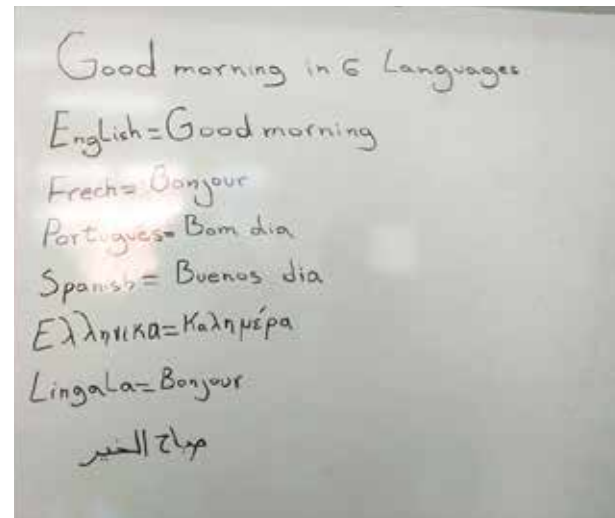 Good morning in 6 Languages
English=Good morning
Frech=Bonjour
Portugués=Bom dia
Spanish=Buenos dia
Ελληνικα=Καλημέρα
Lingala=Bonjour
صباح الخير